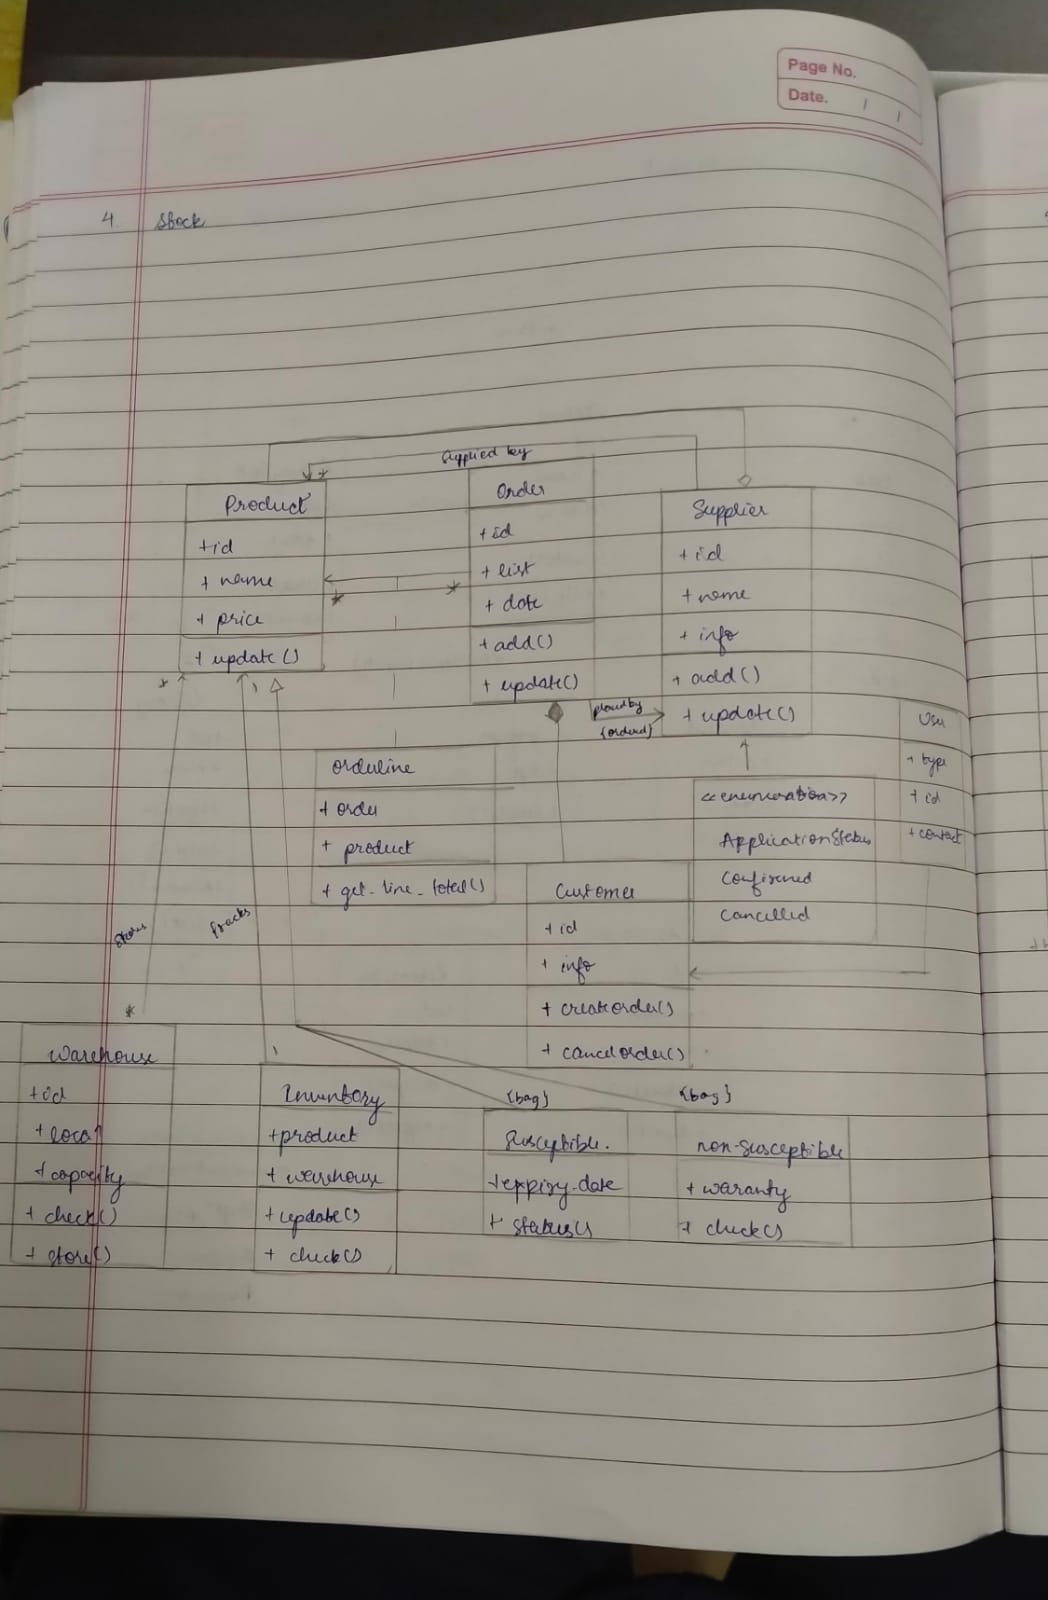 Page No.
Date. / /
4. Stock
Supplied by
*
Product
+id
+ name
+ price
+ update()
Order
+ id
+ list
+ date
+ add()
+ update()
Supplier
+ id
+ name
+ info
+ add()
+ update()
*
*
placed by
{ordered}
User
+ type
+ id
+ contact
orderline
+ order
+ product
+ get-line-total()
<<enumeration>>
Application Status
Confirmed
Cancelled
Customer
+ id
+ info
+ createorder()
+ cancelorder()
*
1
stores
tracks
*
1
Warehouse
+id
+ locan
+ capacity
+ check()
+ store()
Inventory
+product
+ warehouse
+ update()
+ check()
{bag}
Susceptible.
+ exppiry-date
+ status()
{bag}
non-susceptible
+ waranty
+ check()